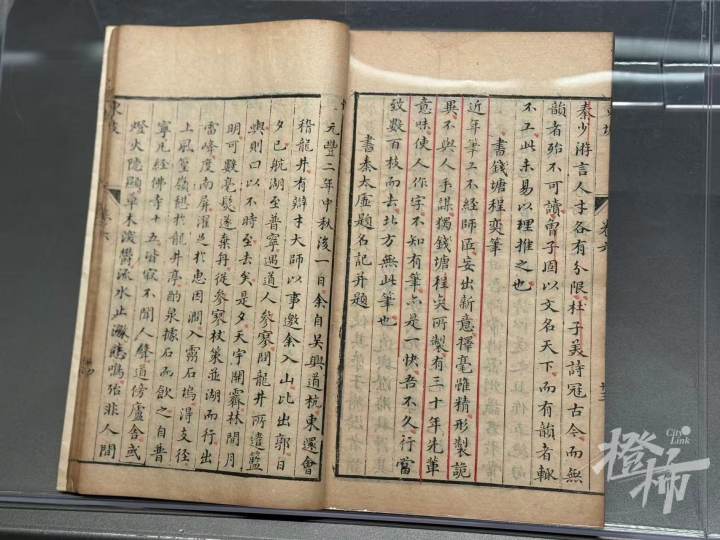 秦少游言人才各有分限杜子美詩冠古今而無
韻者殆不可讀曾子固以文名天下而有韻者輒
不工此未易以理推之也
書錢塘程奕筆
近年筆工不經師匠妄出新意擇毫雖精形製詭
異不與人手謀獨錢塘程奕所製有三十年先輩
意味使人作字不知有筆亦是一快吾不久行當
致數百枝而去北方無此筆也
書秦太虛題名記并題
元豐二年中秋後一日余自吳興道杭東還會
稽龍井有辯才大師以事邀余入山比出郭日
夕已航湖至普寧遇道人參寥問龍井所遣籃
輿則曰以不時至去矣是夕天宇開霽林間月
明可數毫髮遂棄舟從參寥杖策並湖而行出
雷峰度南屏濯足於惠因澗入靈石塢得支徑
上風篁嶺憩於龍井亭酌泉據石而飲之自普
寧凡經佛寺十五皆寂不聞人聲道傍廬舍或
燈火隱顯草木深鬱流水止激悲鳴殆非人間
卷六
City Link
橙柿